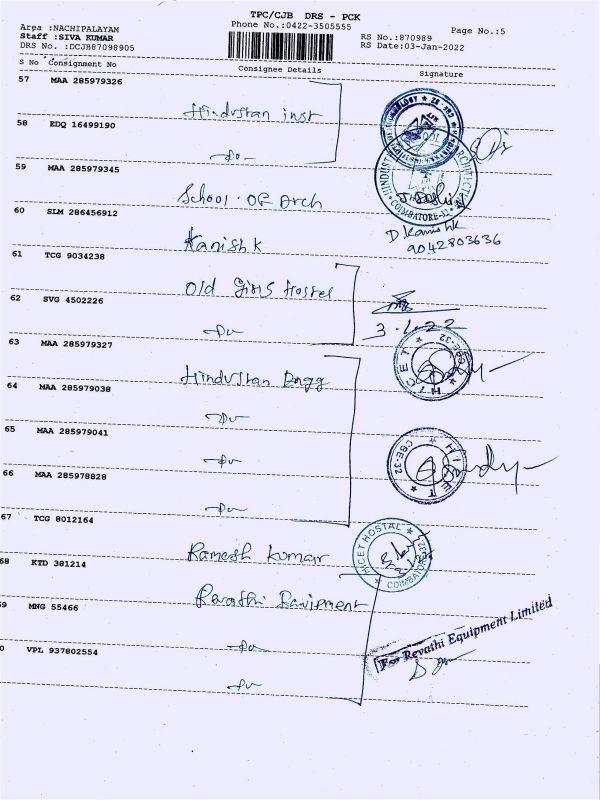 TPC/CJB DRS - PCK
Area :NACHIPALAYAM Phone No.:0422-3505555 Page No.:5
Staff :SIVA KUMAR RS No.:870989
DRS No. :DCJB87098905 RS Date:03-Jan-2022
S No Consignment No Consignee Details Signature
57 MAA 285979326
Hindustan inst
58 EDQ 16499190
Do
59 MAA 285979345
School . OF Arch
60 SLM 286456912
Kanishk
D. Kanishk
9042803636
61 TCG 9034238
Old Girls Hostel
62 SVG 4502226
Do
3.1.22
63 MAA 285979327
Hindustan Engg
HICET
CSE-32
64 MAA 285979038
Do
65 MAA 285979041
Do
HICET
CSE-32
66 MAA 285978828
Do
67 TCG 8012164
Ramesh Kumar
HICET HOSTAL
COIMBATORE
68 KTD 381214
Revathi Equipment
9 MNG 55466
Do
For Revathi Equipment Limited
0 VPL 937802554
Do